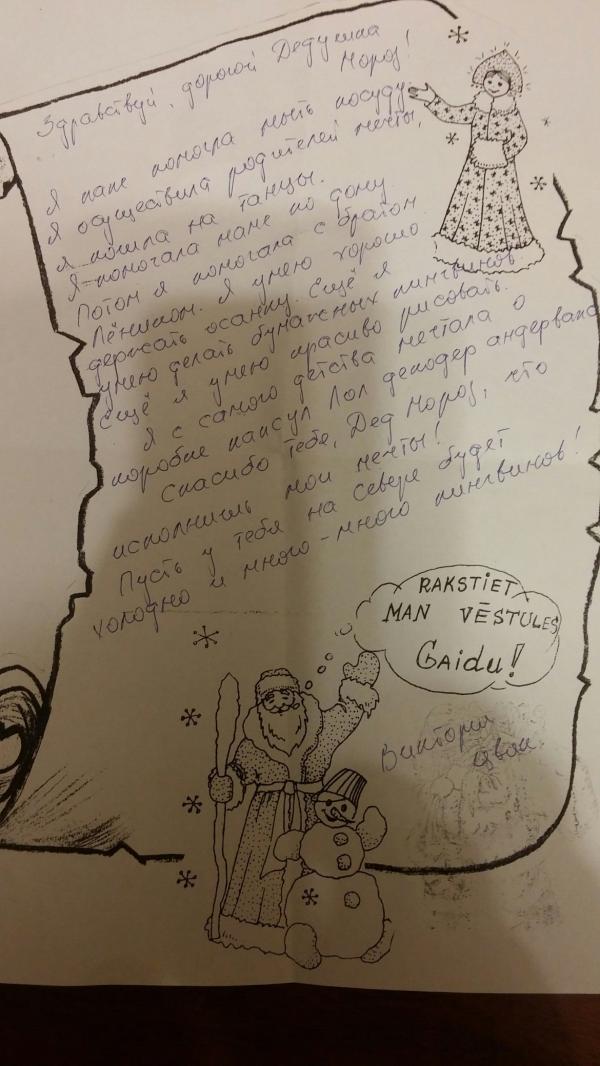 Здравствуй, дорогой Дедушка
Мороз!
Я папе помогла мыть посуду.
Я осуществила родителей мечты,
я пошла на танцы.
Я помогала маме по дому.
Потом я помогала с братом
Лёнчиком. Я умею хорошо
держать осанку. Ещё я
умею делать бумажных пингвинов.
Ещё я умею красиво рисовать.
Я с самого детства мечтала о
коробке капсул Лол декодер андервапс
Спасибо тебе, Дед Мороз, что
исполнишь мои мечты!
Пусть у тебя на севере будет
холодно и много-много пингвинов!
RAKSTIET
MAN VĒSTULES
Gaidu!
Виктория